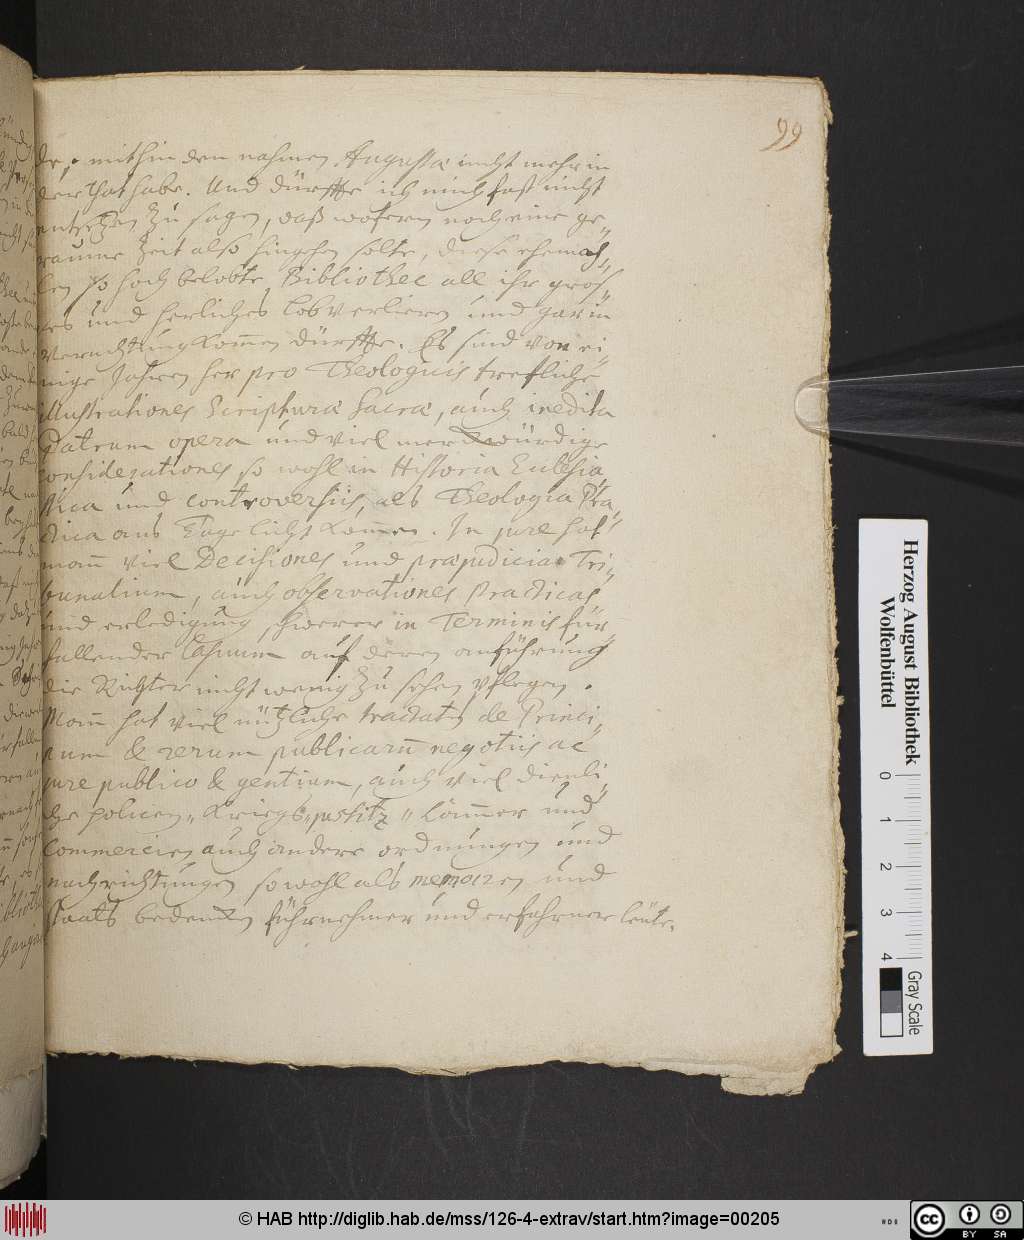 99
de, mithin den nahmen Augustæ nicht mehr in
der that habe. Und dürffte ich mich fast nicht
entsetzen zu sagen, daß wofern noch eine ge-
raume Zeit also hingehen solte, diese ehemah-
len so hoch belobte Bibliothec all ihr gros-
ses und herliches Lob verlieren und gar in
verachtung kom̄en dürffte. Es sind von ei-
nige Jahren her pro Theologicis trefliche
illustrationes Scripturæ Sacræ, auch inedita
Patrum opera und viel merckwürdige
considerationes so wohl in Historia Eclesia-
stica und controversiis, als Theologia Pra-
ctica ans Tage licht kom̄en. In jure hat
man̄ viel Decisiones und præjudicia Tri-
bunalium, auch observationes Practicas
und erledigung schwerer in Terminis für-
fallender Casuum auf deren anführung
die Richter nicht wenig zu sehen pflegen.
Man̄ hat viel nützliche tractats de Princi-
pum & rerum publicarum̄ negotiis ac
jure publico & gentium, auch viel dienli-
che policey- Kriegs- justitz- Cam̄er und
Commercien auch andere ordnungen und
nachrichtungen so wohl als memoiren und
staats bedencken führnehmer und erfahrner leute.
Herzog August Bibliothek
Wolfenbüttel
0 1 2 3 4
Gray Scale
© HAB http://diglib.hab.de/mss/126-4-extrav/start.htm?image=00205
CC BY SA